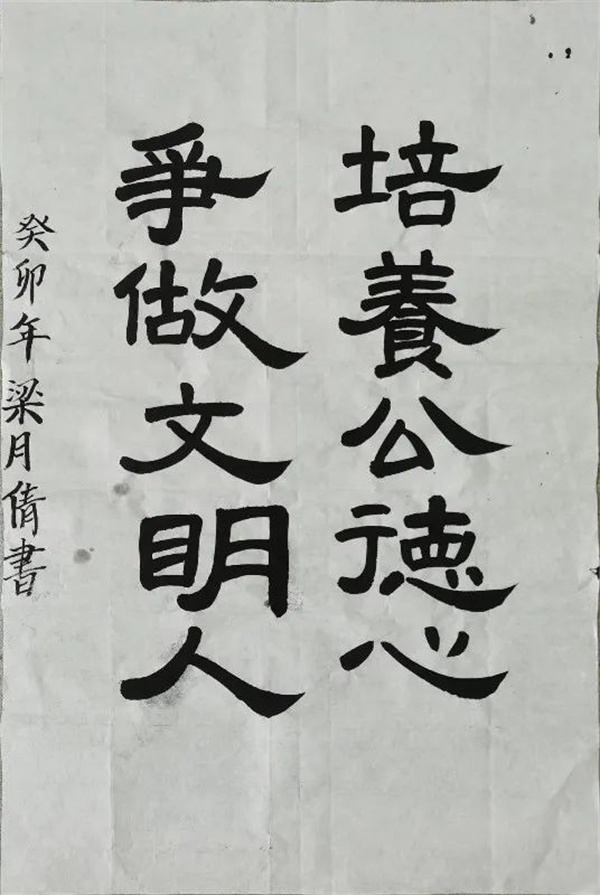 培養公德心
爭做文明人
癸卯年梁月倩書